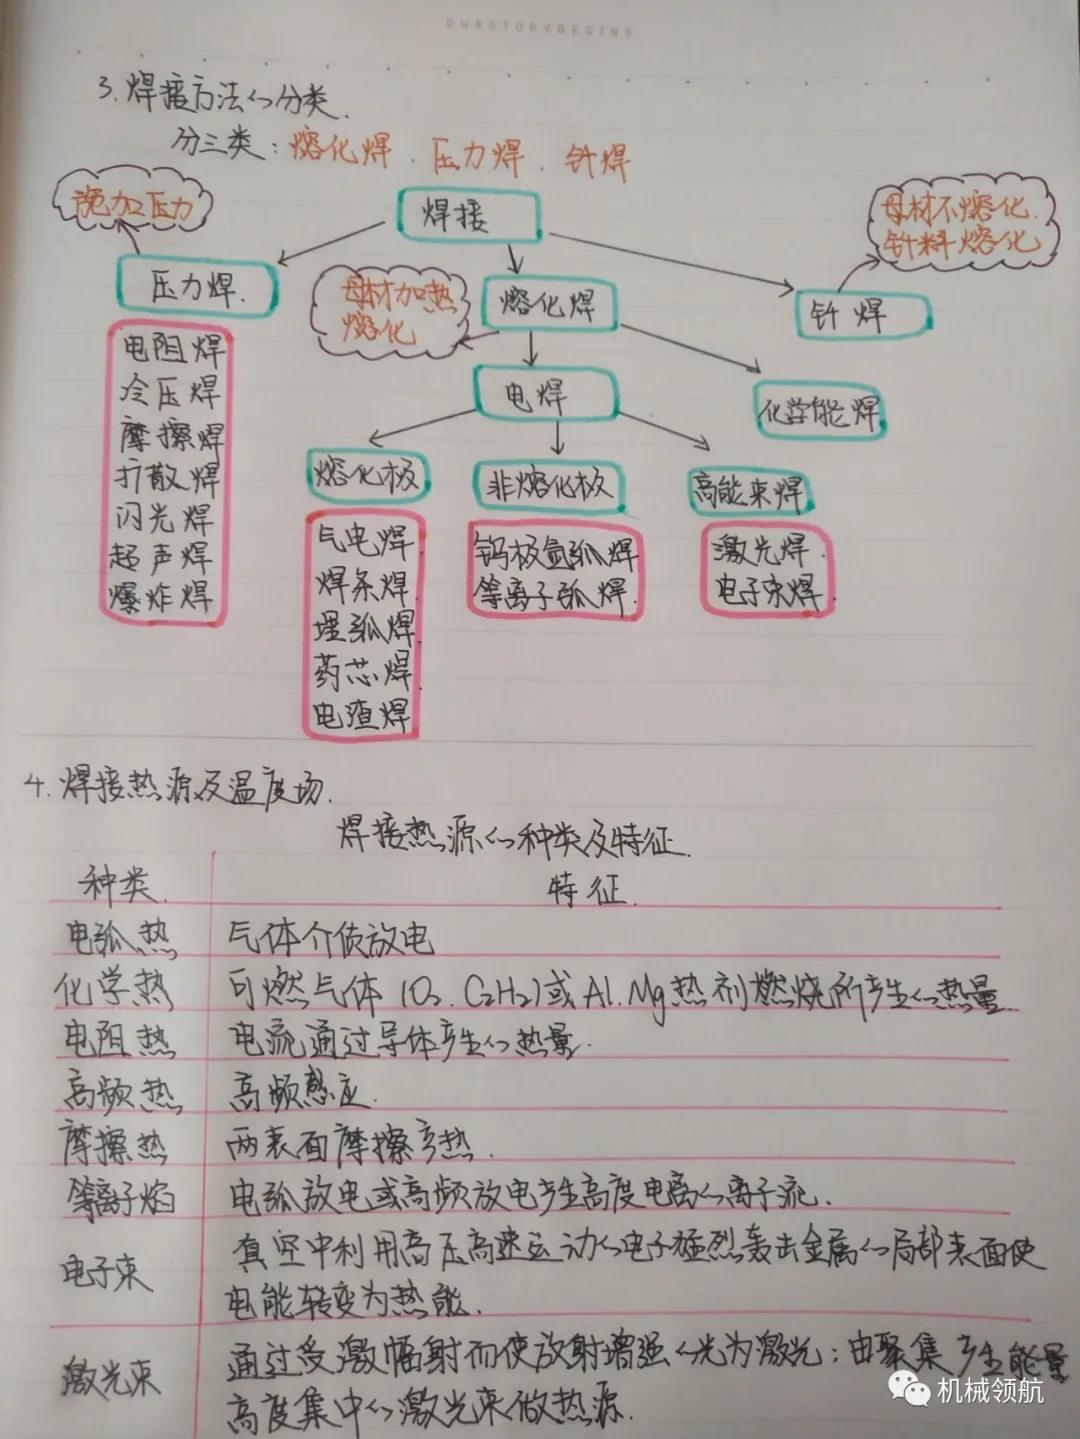 OURSTORYBEGINS
3. 焊接方法的分类.
分三类：熔化焊．压力焊．钎焊
焊接
施加压力
母材不熔化.
钎料熔化
压力焊.
母材加热
熔化
熔化焊
钎焊
电阻焊
冷压焊
摩擦焊
扩散焊
闪光焊
超声焊
爆炸焊
电焊
化学能焊
熔化极
非熔化极
高能束焊
气电焊.
焊条焊.
埋弧焊.
药芯焊.
电渣焊
钨极氩弧焊
等离子弧焊.
激光焊.
电子束焊.
4. 焊接热源及温度场.
焊接热源的种类及特征.
种类. 特征.
电弧热 气体介质放电
化学热 可燃气体(O₂. C₂H₂)或Al. Mg热剂燃烧所产生的热量.
电阻热 电流通过导体产生的热量.
高频热 高频感应.
摩擦热 两表面摩擦产热.
等离子焰 电弧放电或高频放电产生高度电离的离子流.
电子束 真空中利用高压高速运动的电子猛烈轰击金属的局部表面使
电能转变为热能.
激光束 通过受激幅射而使放射增强的光为激光；由聚集产生能量
高度集中的激光束做热源.
机械领航